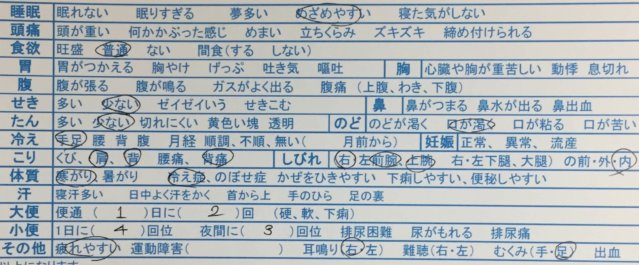 睡眠 眠れない 眠りすぎる 夢多い めざめやすい 寝た気がしない
頭痛 頭が重い 何かかぶった感じ めまい 立ちくらみ ズキズキ 締め付けられる
食欲 旺盛 普通 ない 間食(する しない)
胃 胃がつかえる 胸やけ げっぷ 吐き気 嘔吐 胸 心臓や胸が重苦しい 動悸 息切れ
腹 腹が張る 腹が鳴る ガスがよく出る 腹痛 (上腹、わき、下腹)
せき 多い 少ない ゼイゼイいう せきこむ 鼻 鼻がつまる 鼻水が出る 鼻出血
たん 多い 少ない 切れにくい 黄色い塊 透明 のど のどが渇く 口が渇く 口が粘る 口が苦い
冷え 手足 腰 背 腹 月経 順調、不順、無い( 月前から) 妊娠 正常、異常、流産
こり くび、肩、背 腰痛、背痛 しびれ 右・左前腕、上腕 右・左下腿、大腿) の前・外・内
体質 寒がり、暑がり 冷え症、のぼせ症 かぜをひきやすい 下痢しやすい、便秘しやすい
汗 寝汗多い 日中よく汗をかく 首から上 手のひら 足の裏
大便 便通( 1 )日に( 2 )回 (硬、軟、下痢)
小便 1日に( 4 )回位 夜間に( 3 )回位 排尿困難 尿がもれる 排尿痛
その他 疲れやすい 運動障害( ) 耳鳴り(右・左) 難聴(右・左) むくみ(手・足) 出血